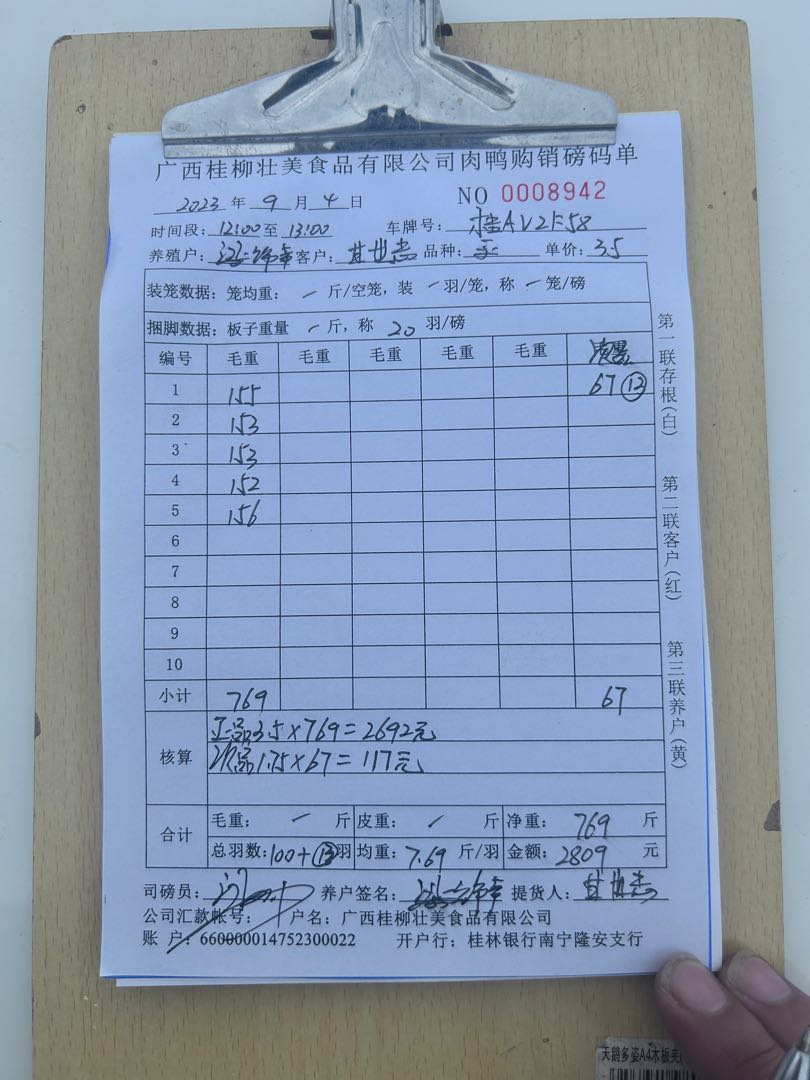 广西桂柳壮美食品有限公司肉鸭购销磅码单
2023 年 9 月 4 日 NO 0008942
时间段: 12:00 至 13:00 车牌号: 桂AV2F58
养殖户: 客户: 甘世杰 品种: 单价: 3.5
装笼数据: 笼均重: / 斤/空笼, 装 - 羽/笼, 称 - 笼/磅
捆脚数据: 板子重量 - 斤, 称 20 羽/磅
编号 毛重 毛重 毛重 毛重 毛重
1 155 67 ⑬
2 153
3 153
4 152
5 156
6
7
8
9
10
小计 769 67
核算 正品3.5×769=2692元
次品1.75×67=117元
合计 毛重: / 斤 皮重: / 斤 净重: 769 斤
总羽数: 100+⑬羽 均重: 7.69 斤/羽 金额: 2809 元
司磅员: 养户签名: 提货人: 甘世杰
公司汇款帐号: 户名: 广西桂柳壮美食品有限公司
账 户: 660000014752300022 开户行: 桂林银行南宁隆安支行
第一联存根(白)
第二联客户(红)
第三联养户(黄)
天鹅多姿A4木板夹